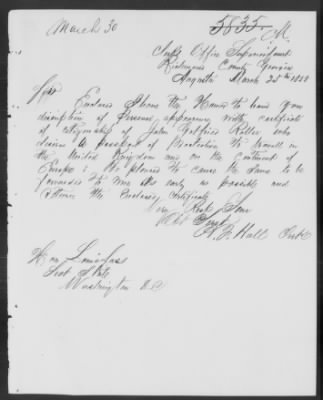 March 30
5835
M
Clerks Office Superior Court
Richmond County Georgia
Augusta March 25th 18
Sir
Enclosed please the Honor to hand you
discription of Person, appearance with certificate
of citizenship of John Gotfried who
desires a Passport of Protection to travel in
the United Kingdom and on the Continent of
Europe. Be pleased to cause the same to be
forwarded to me as early as possible and
return the Enclosed Certificate
Very Resp. Your
Obt Servt
Hall Clerk
Hon Lewis Cass
Sect State
Washington D.C